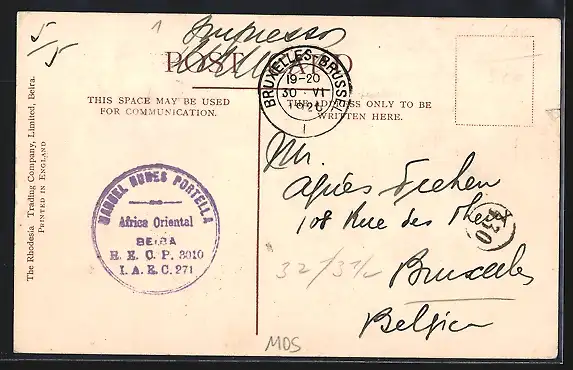 5/5
1
Impresso
POST CARD
BRUXELLES BRUSSEL
19-20
30 VI
1920
1
THIS SPACE MAY BE USED
FOR COMMUNICATION.
THE ADDRESS ONLY TO BE
WRITTEN HERE.
The Rhodesia Trading Company, Limited, Beira.
PRINTED IN ENGLAND
MANUEL NUNES PORTELLA
Africa Oriental
BEIRA
R. E. C. P. 3010
I. A. E. C. 271
Mr.
108 Rue des
330
Bruxelles
Belgien
MOS